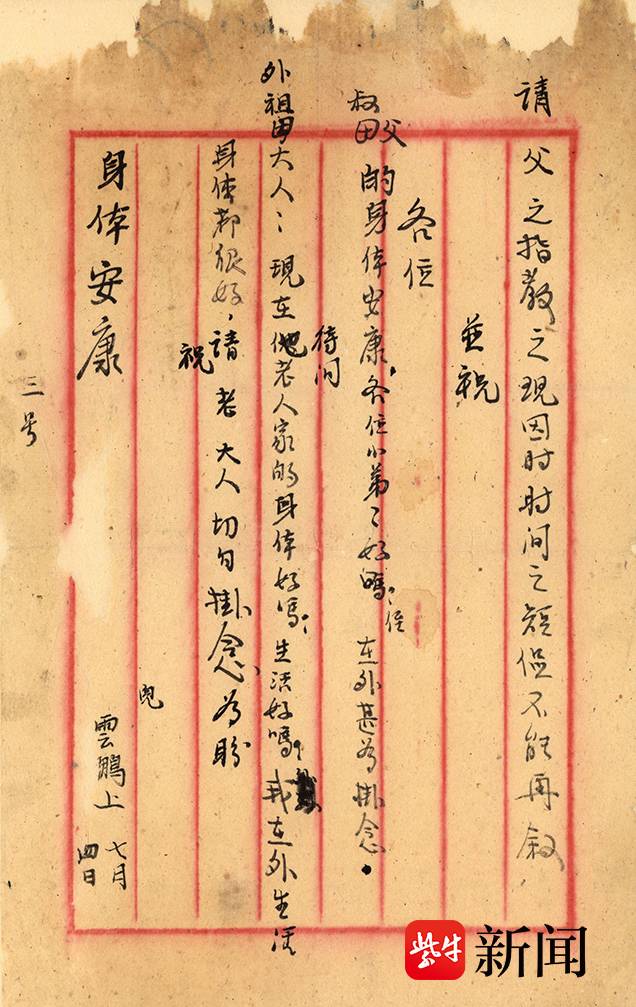 請父之指教之現因时时间之短促不能再叙，
並祝
各位
叔父母的身体安康，各位小弟〻好嗎？侄在外甚為掛念。
待问
外祖母大人：現在他老人家的身体好嗎？生活好嗎？我在外生活
身体都很好，請老大人切勿掛念為盼
祝
身体安康
兒
雲鵬上
七月
四日
三号
紫牛新闻